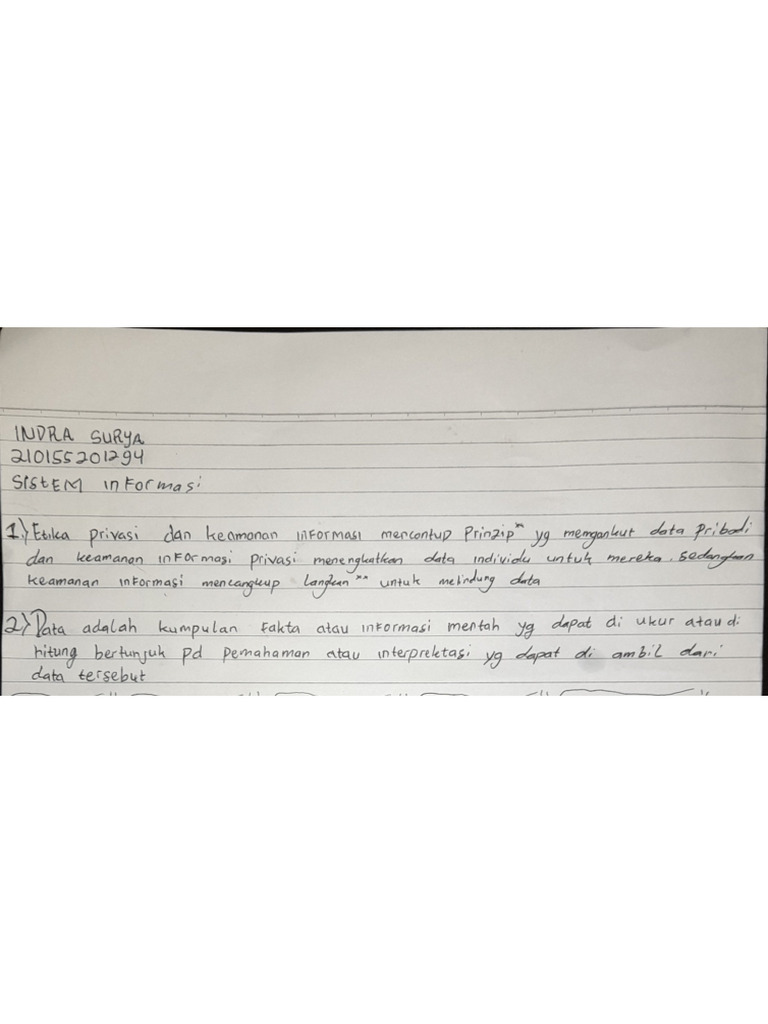 INDRA SURYA
210155201294
SISTEM informasi
1.) Etika privasi dan keamanan informasi mencontup Prinzip" yg memgankut data Pribadi
dan keamanan informasi privasi menengkatkan data individu untuk mereka. Sedangkan
keamanan informasi mencangkup langkan "" untuk melindung data
2.) Data adalah kumpulan fakta atau informasi mentah yg dapat di ukur atau di
hitung bertunjuk pd pemahaman atau interprektasi yg dapat di ambil dari
data tersebut